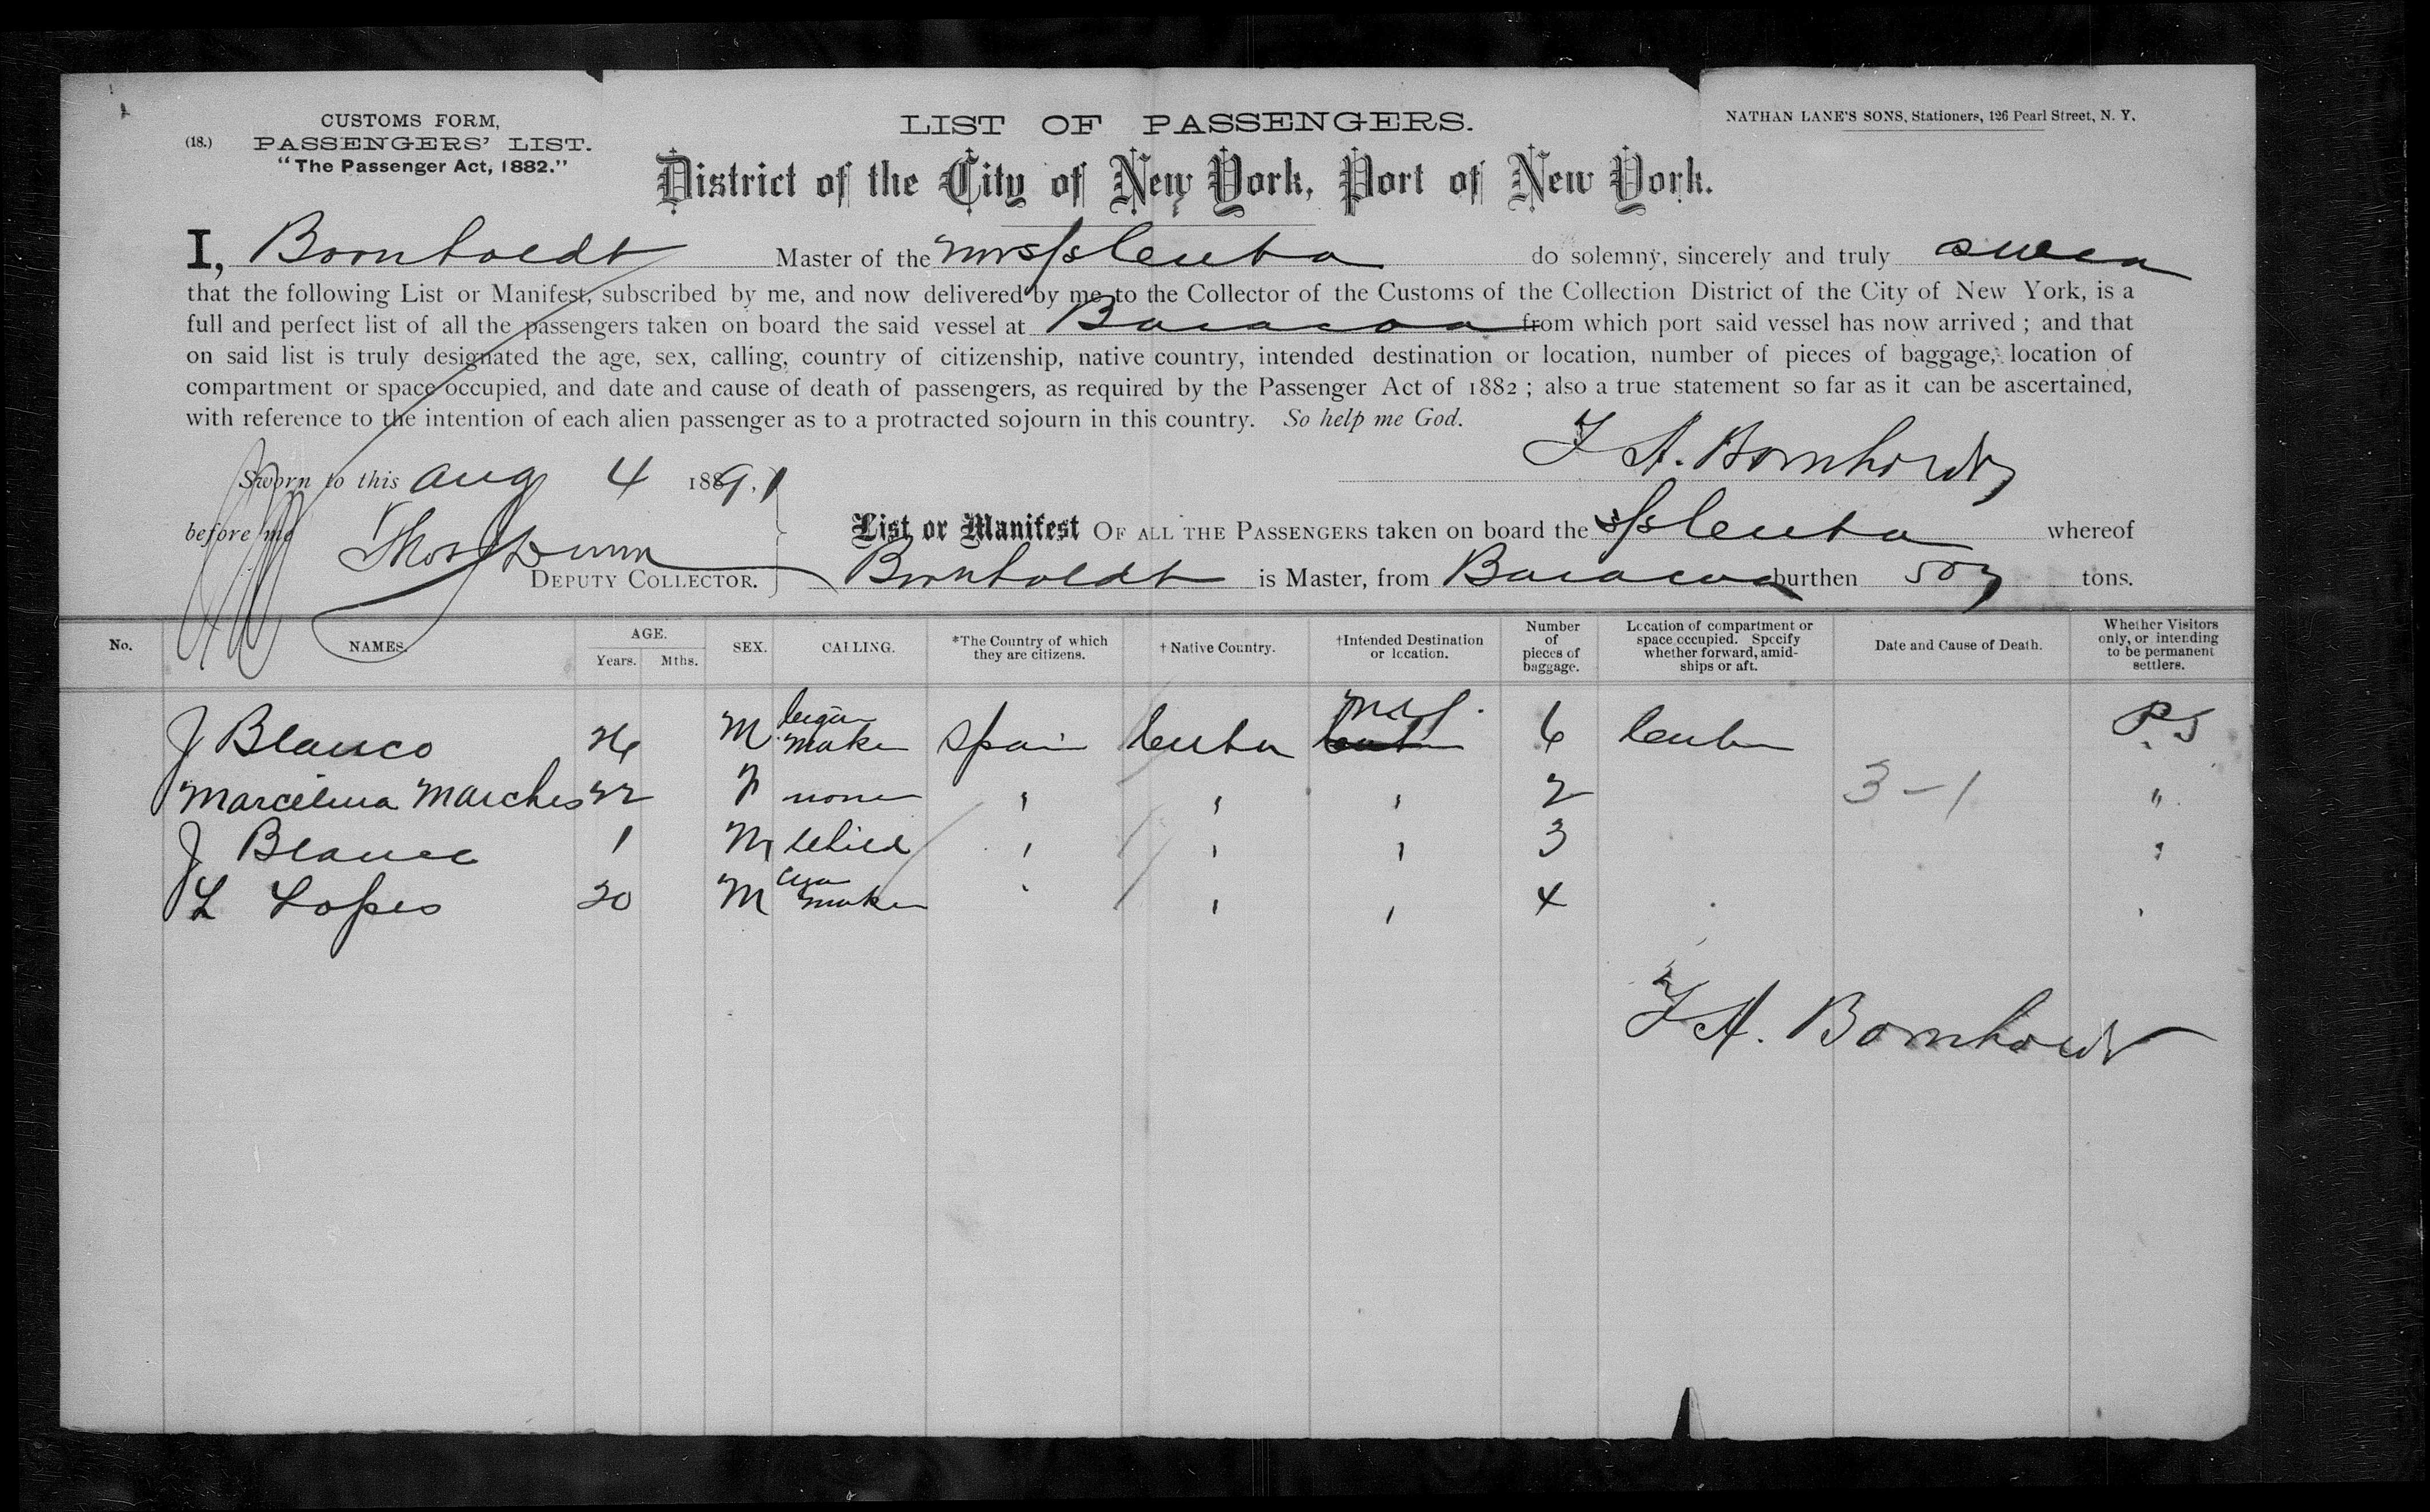 CUSTOMS FORM,
(18.) PASSENGERS' LIST.
"The Passenger Act, 1882."
LIST OF PASSENGERS.
NATHAN LANE'S SONS, Stationers, 126 Pearl Street, N. Y.
District of the City of New York, Port of New York.
I, Bornholdt Master of the do solemny, sincerely and truly swear
that the following List or Manifest, subscribed by me, and now delivered by me to the Collector of the Customs of the Collection District of the City of New York, is a
full and perfect list of all the passengers taken on board the said vessel at Baracoa from which port said vessel has now arrived ; and that
on said list is truly designated the age, sex, calling, country of citizenship, native country, intended destination or location, number of pieces of baggage, location of
compartment or space occupied, and date and cause of death of passengers, as required by the Passenger Act of 1882 ; also a true statement so far as it can be ascertained,
with reference to the intention of each alien passenger as to a protracted sojourn in this country. So help me God.
Sworn to this Aug 4 1891
before me Thos Dunn
DEPUTY COLLECTOR.
List or Manifest OF ALL THE PASSENGERS taken on board the whereof
Bornholdt is Master, from Baracoa burthen 507 tons.
No. NAMES. AGE. Years. Mths. SEX. CALLING. *The Country of which they are citizens. † Native Country. †Intended Destination or location. Number of pieces of baggage. Location of compartment or space occupied. Specify whether forward, amidships or aft. Date and Cause of Death. Whether Visitors only, or intending to be permanent settlers.
J Blanco 26 M Cigar maker Spain Cuba 6 P.S
Marcelina Marches 22 F none " " " 2 3-1 "
J Blanco 1 M Child " " " 3 "
L Lopes 20 M Cigar maker " " " 4 "